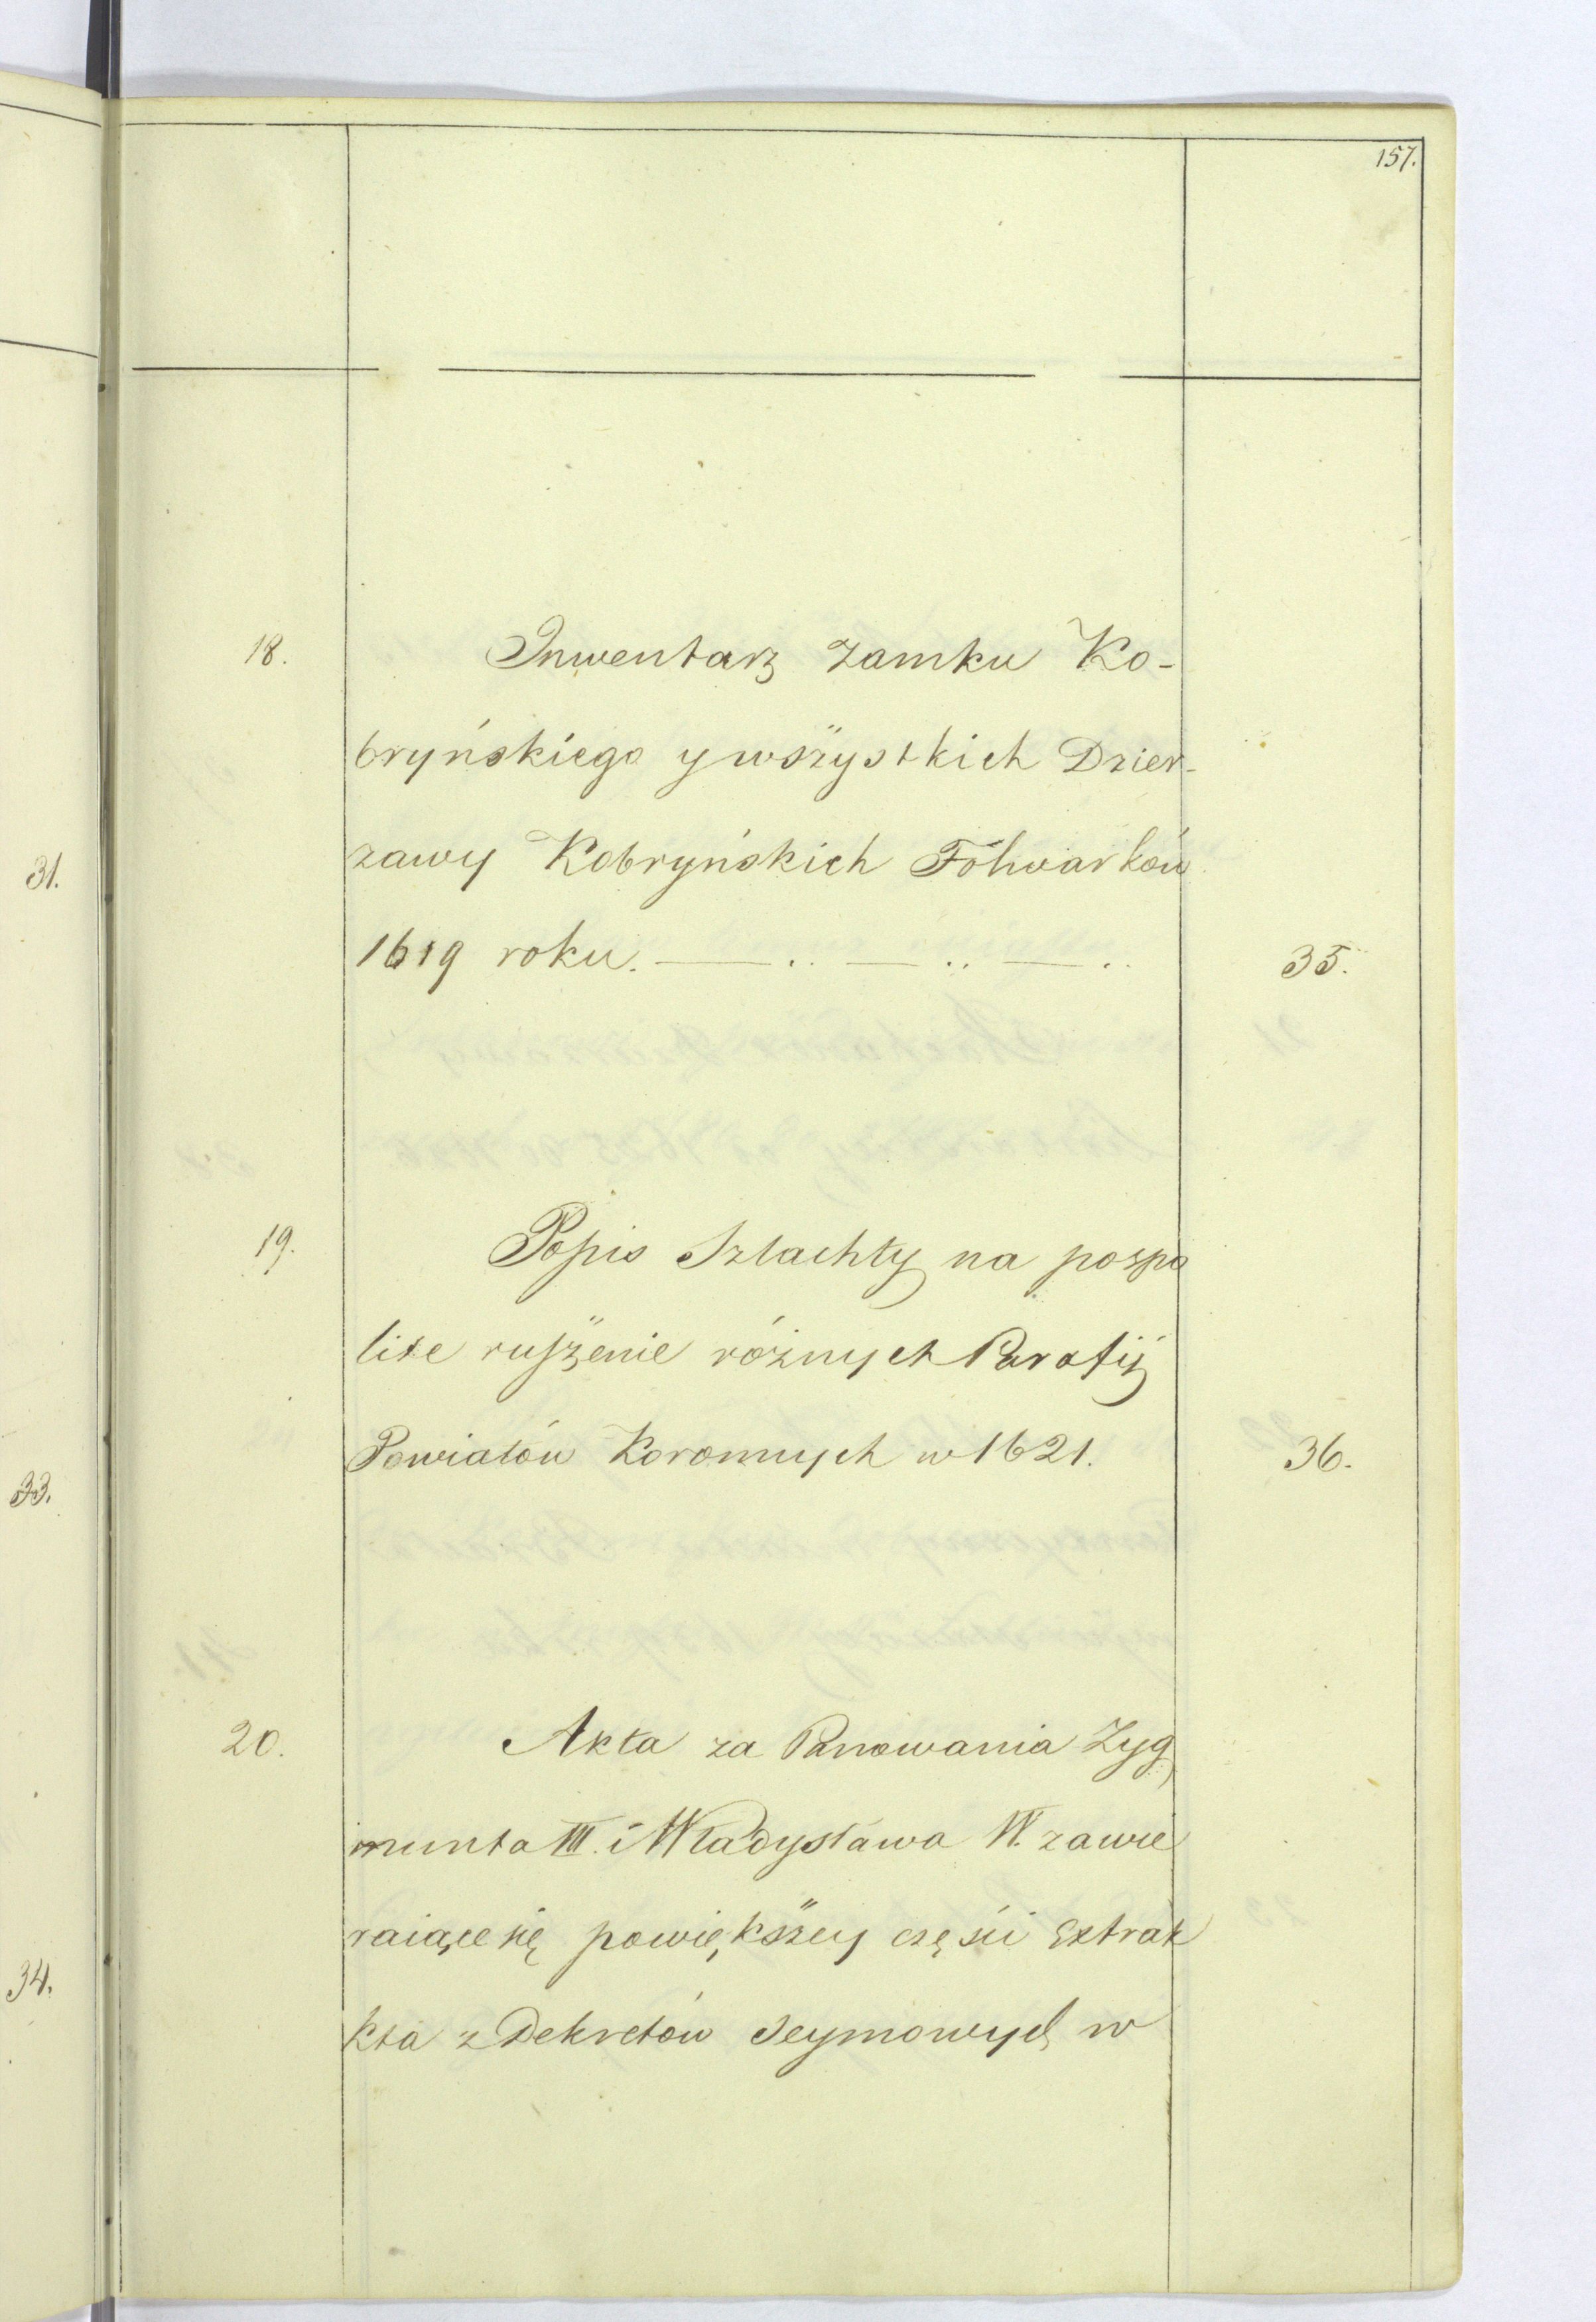 157.
18. Inwentarz zamku Ko-
bryńskiego y wszystkich Dzier-
zawy Kobryńskich Folwarków
1619 roku. — .. — .. — .. 35.
19. Popis Szlachty na pospo
lite ruszenie różnych Parafij
Powiatów Koronnych w 1621. 36.
20. Akta za Panowania Zyg
munta III. i Władysława IV. zawie
raiące się powiększey części Extrak
kta z Dekretów Seymowych w
31.
33.
34.